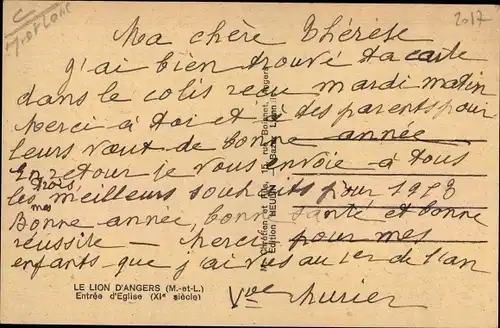 2017
Ma chère Thérèse
j'ai bien trouvé ta carte
dans le colis reçu mardi matin
Merci à toi et à tes parents pour
leurs vœux de bonne année
En retour je vous envoie à tous
trois
les meilleurs souhaits pour 1978
mes
Bonne année, bonne santé et bonne
réussite — Merci pour mes
enfants que j'ai vus au 1er de l'an
Vve
LE LION D'ANGERS (M.-et-L.)
Entrée d'Eglise (XIe siècle)